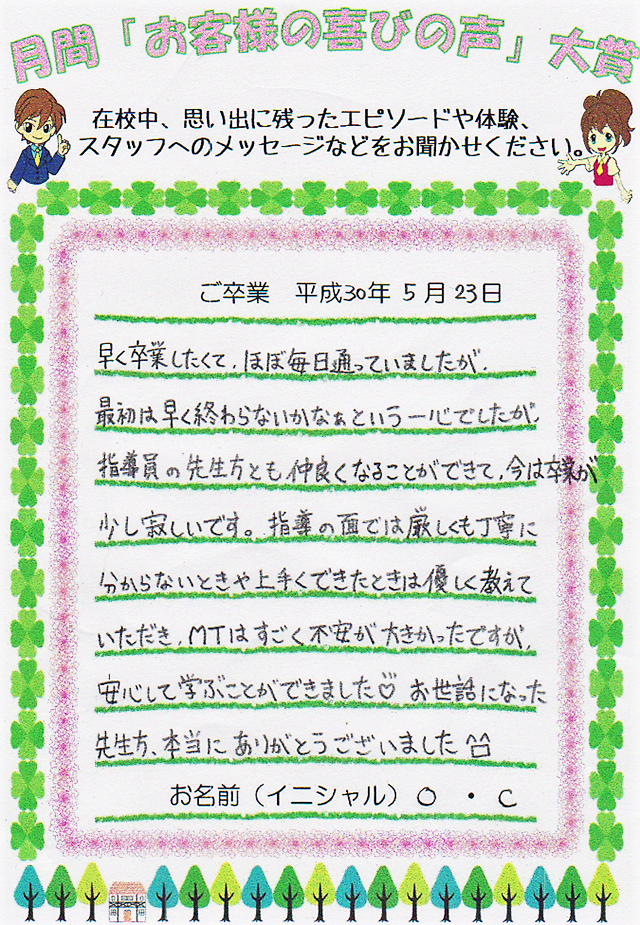 月間「お客様の喜びの声」大賞
在校中、思い出に残ったエピソードや体験、
スタッフへのメッセージなどをお聞かせください。
ご卒業 平成30年 5月23日
早く卒業したくて、ほぼ毎日通っていましたが、
最初は早く終わらないかなぁという一心でしたが、
指導員の先生方とも仲良くなることができて、今は卒業が
少し寂しいです。指導の面では厳しくも丁寧に
分からないときや上手くできたときは優しく教えて
いただき、MTはすごく不安が大きかったですが、
安心して学ぶことができました♡ お世話になった
先生方、本当にありがとうございました
お名前（イニシャル） O ・ C